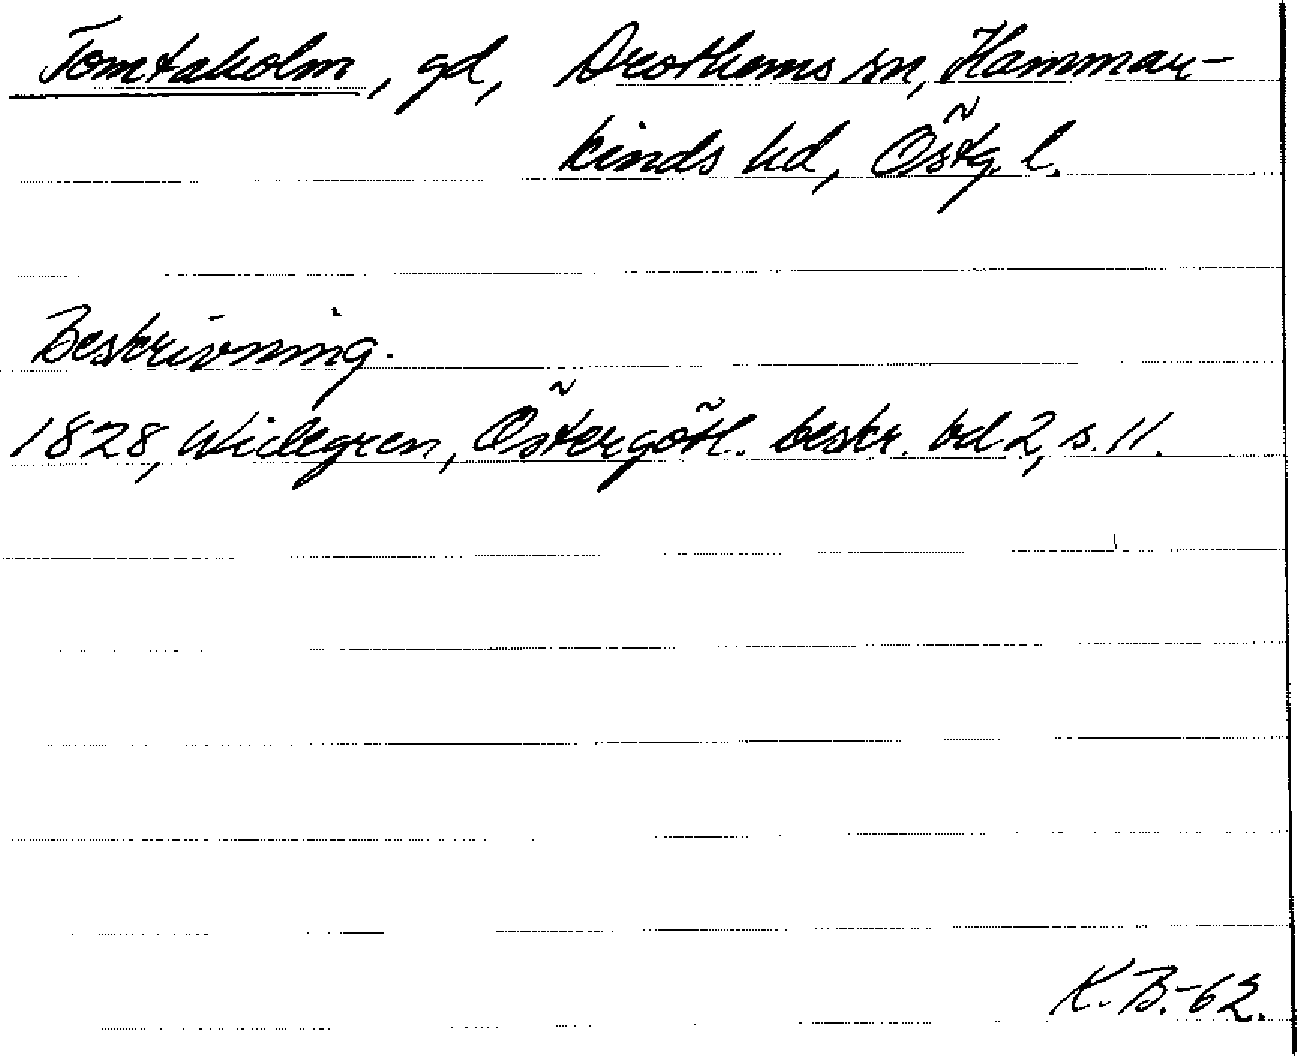 Tomtaholm, gd, Drothems sn, Hammar-
kinds hd, Östg. l.
Beskrivning.
1828, Widegren, Östergötl. beskr. bd 2, s. 11.
K. B.-62.